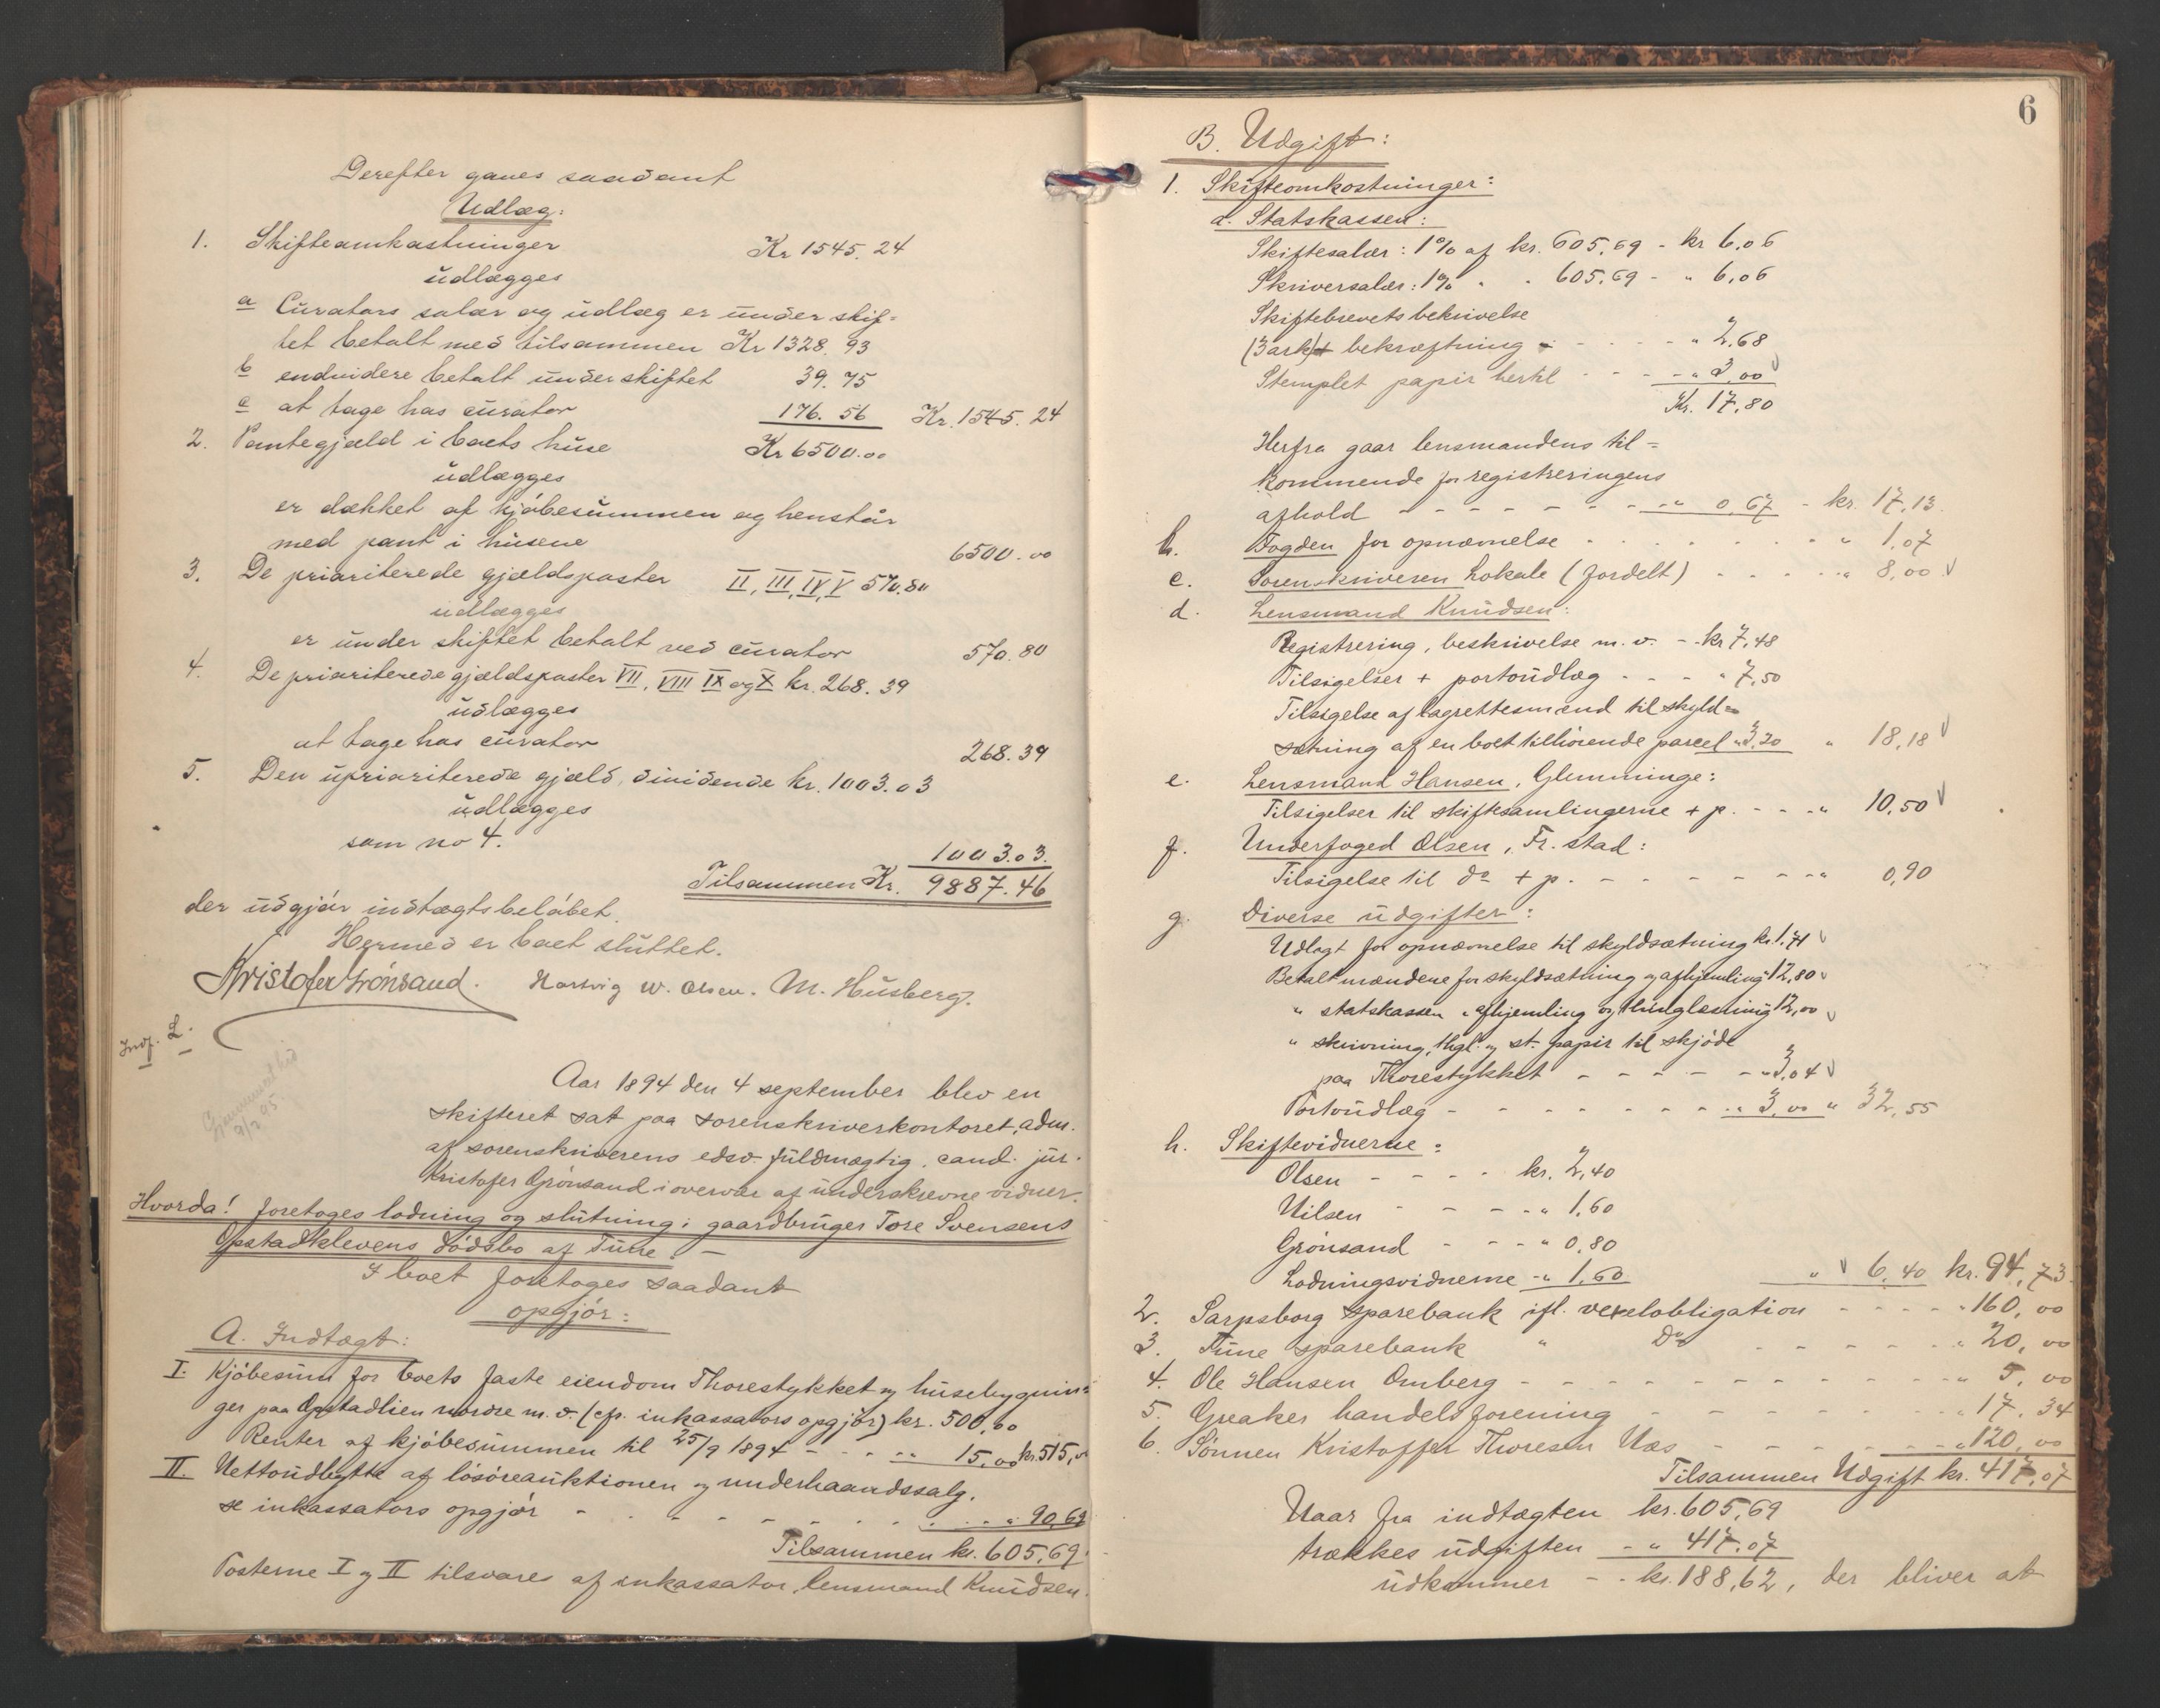 Derefter gaves saadant
Udlæg:
1. Skifteomkostninger Kr 1545.24
udlægges
a Curators salær og udlæg er under skif=
tet betalt med tilsammen Kr 1328.93
b endvidere betalt under skiftet 39.75
c at tage hos curator 176.56 Kr. 1545.24
2. Pantegjæld i boets huse Kr 6500.00
udlægges
er dækket af kjøbesummen og henstår
med pant i husene 6500.00
3. De prioriterede gjældsposter II, III, IV, V 570.80
udlægges
er under skiftet betalt ved curator 570.80
4. De prioriterede gjældsposter VII, VIII IX og X kr. 268.39
udlægges
at tage hos curator 268.39
5. Den uprioriterede gjæld, dividende kr. 1003.03
udlægges
som no 4. 1003.03.
Tilsammen Kr. 9887.46
der udgjør indtægtsbeløbet.
Hermed er boet sluttet.
Kristofer Grönsand. Hartvig W. Olsen. M. Husberg.
Indf. L.
Aar 1894 den 4 september blev en
skifteret sat paa sorenskriverkontoret, adm.
af sorenskriverens edsv. fuldmægtig, cand. jur.
Kristofer Grönsand i overvær af underskrevne vidner.
Hvorda! foretoges lodning og slutning i gaardbruger Tore Svensens
Opstadklevens dødsbo af Tune. —
I boet foretoges saadant
opgjør:
A. Indtægt:
I. Kjøbesum for boets faste eiendom Thorestykket og husebygnin=
ger paa Opstadlien nordre m.v. (cfr. inkassators opgjør) kr. 500,00
Renter af kjøbesummen til 25/9 1894 - - - - „ 15,00 kr. 515,00
II. Nettoudbytte af løsøreauktionen og underhaandssalg,
se inkassators opgjør - - - - - - - - - „ 90,69
Tilsammen kr. 605,69
Posterne I og II tilsvares af inkassator, lensmand Knudsen.
6
B. Udgift:
1. Skifteomkostninger:
a. Statskassen:
Skiftesalær: 1% af kr. 605,69 - kr 6,06
Skriversalær: 1% „ „ 605,69 - „ 6,06
Skiftebrevets bekrivelse
(3 ark) + bekræftning - - - - - „ 2,68
Stemplet papir hertil - - - - „ 3,00
Kr. 17,80
Herfra gaar lensmandens til=
kommende for registreringens
afhold - - - - - - - - „ 0,67 - kr. 17,13
b. Fogden for opnævnelse - - - - - - - - „ 1,07
c. Sorenskriveren Lokale (fordelt) - - - - - „ 8,00
d. Lensmand Knudsen:
Registrering, beskrivelse m.v. - kr 7,48
Tilsigelser + portoudlæg - - - - „ 7,50
Tilsigelse af lagrettesmænd til skyld=
sætning af en boet tilhørende parcel „ 3,20 „ 18,18
e. Lensmand Hansen, Glemminge:
Tilsigelser til skiftesamlingerne + p. - - - „ 10,50
f. Underfoged Olsen, Fr.stad:
Tilsigelse til do + p. - - - - - - - „ 0,90
g. Diverse udgifter:
Udlagt for opnævnelse til skyldsætning kr. 1,71
Betalt mændene for skyldsætning og afhjemling „ 12,80
„ statskassen „ afhjemling og thinglæsning 12,00
„ skrivning, thgl. og st. papir til skjøde
paa Thorestykket - - - - - - „ 3,04
Portoudlæg - - - - - - - - - „ 3,00 „ 32,55
h. Skiftevidnerne:
Olsen - - - - kr. 2,40
Nilsen - - - - „ 1,60
Grönsand - - - „ 0,80
Lodningsvidnerne - „ 1,60 „ 6,40 kr. 94,73
2. Sarpsborg sparebank ifl. vexelobligation - - - - „ 160,00
3. Tune sparebank „ Do - - - - - - „ 20,00
4. Ole Hansen Omberg - - - - - - - - - - - „ 5,00
5. Greaker handelsforening - - - - - - - - „ 17,34
6. Sønnen Kristoffer Thoresen Næs - - - - - - „ 120,00
Tilsammen Udgift kr. 417,07
Naar fra indtægten kr. 605,69
trækkes udgiften - „ 417,07
udkommer - - kr. 188,62, der bliver at